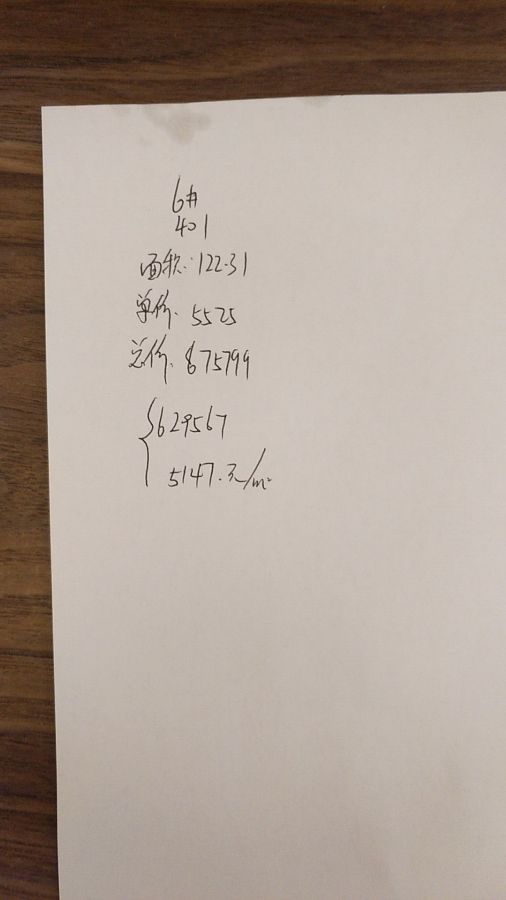 6#
401
面积:122.31
单价.5525
总价.675799
629567
5147.元/m²